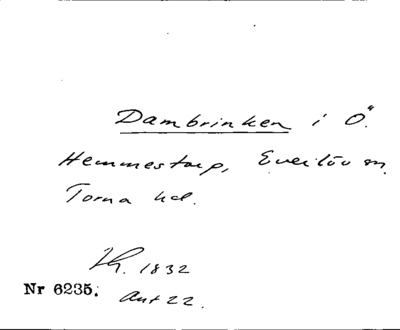 Dambrinken i Ö.
Hemmestorp, Everlöv sn,
Torna hd.
Lh. 1832
Nr 6235. Ant 22.